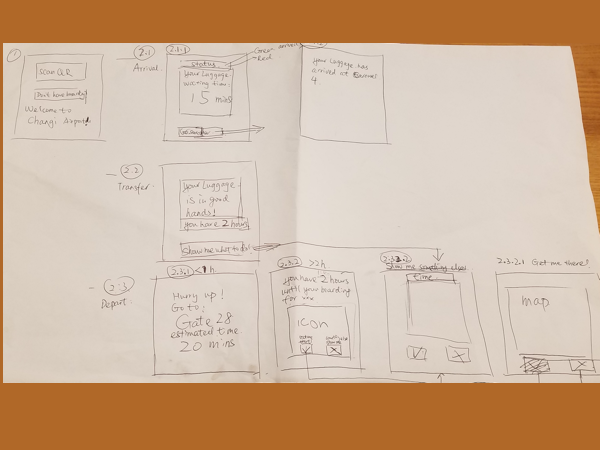 1
Scan QR
Don't have
Welcome to
Changi Airport!
2.1
Arrival.
2.1.1
status
Green
Red
Your Luggage
waiting time:
15 mins
your Luggage has
arrived at
4
2.2
Transfer.
your Luggage
is in good
hands!
you have 2 hours
Show me what to do!
2.3
Depart.
2.3.1 <1h.
Hurry up!
Go to:
Gate 28
estimated time
20 mins
2.3.2 >2h
you have 2 hours
until your boarding
for xxx
icon
2.3.2.2
Show me something else
time
2.3.2.1 Get me there!
map